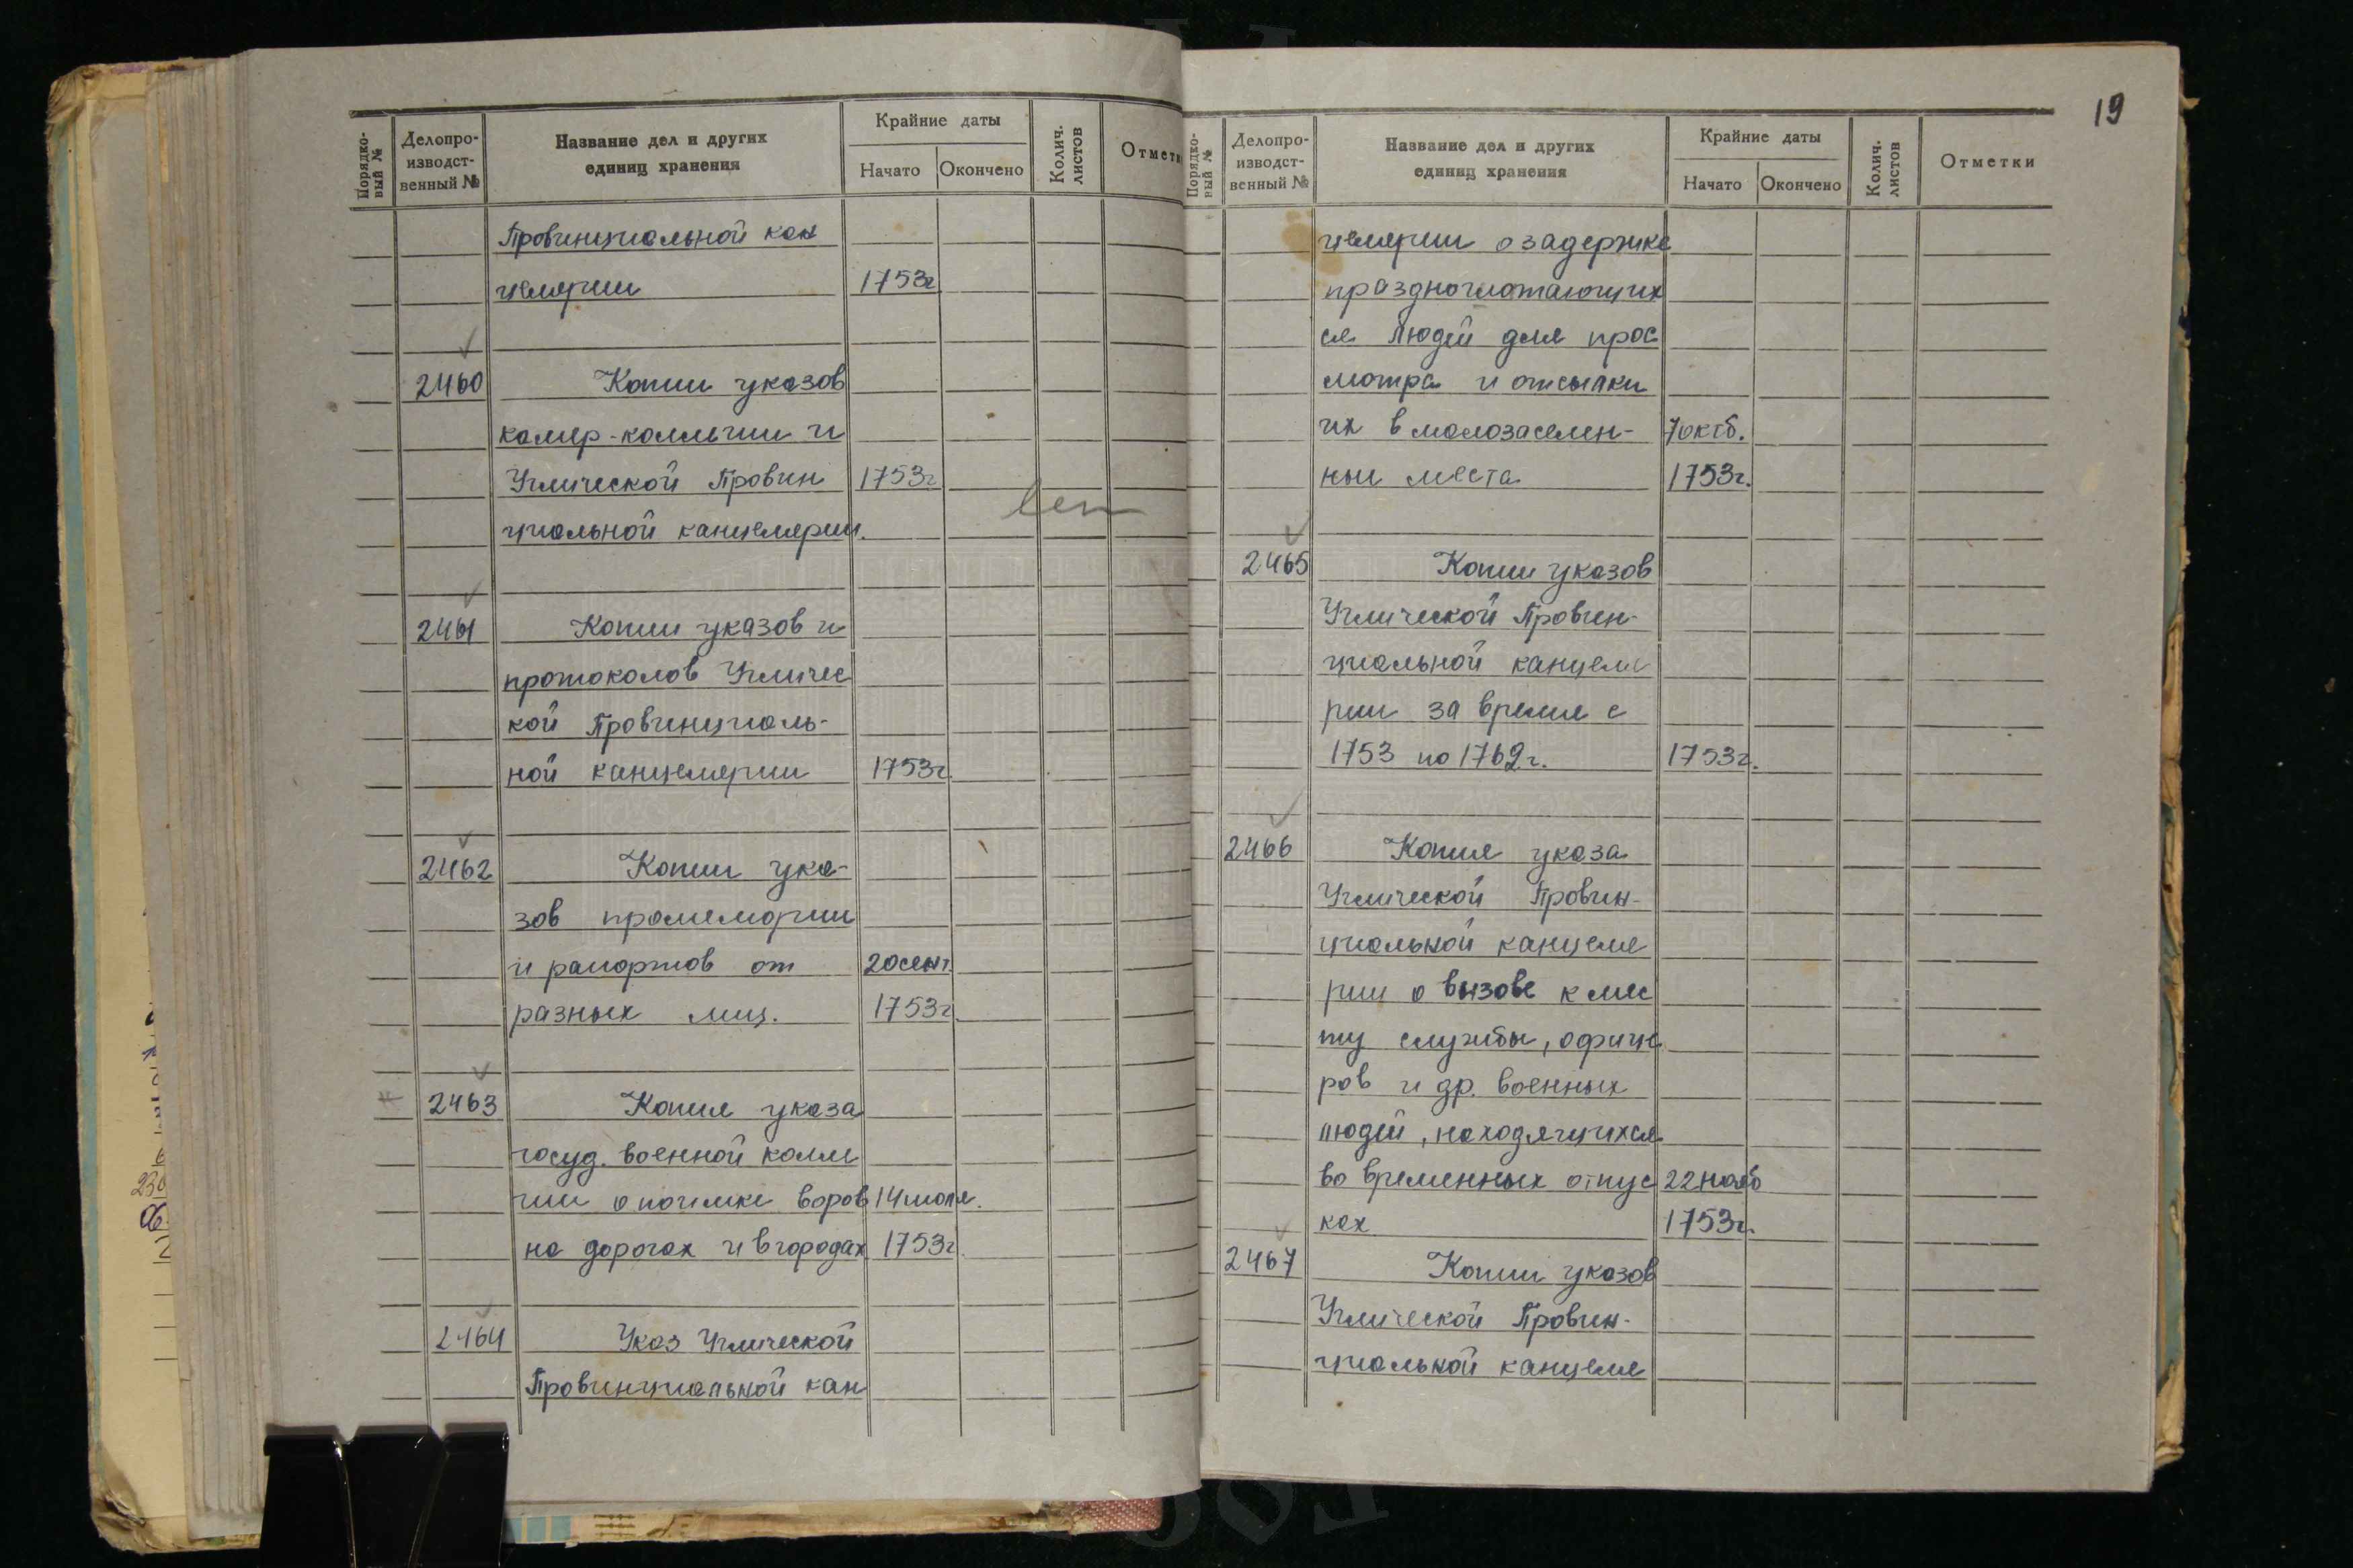 Порядко-
вый №
Делопро-
изводст-
венный №
Название дел и других
единиц хранения
Крайние даты
Начато
Окончено
Колич.
листов
Отметк
Провинциальной кан
целярии 1753г
2460 Копии указов
камер-коллегии и
Углической Провин 1753г
циальной канцелярии.
2461 Копии указов и
протоколов Угличес
кой Провинциаль-
ной канцелярии 1753г.
2462 Копии ука-
зов промемории
и рапортов от 20 сент.
разных лиц. 1753г.
2463 Копия указа
госуд. военной колле
гии о поимке воров 14 июля.
на дорогах и в городах 1753г.
2464 Указ Углической
Провинциальной кан
19
Порядко-
вый №
Делопро-
изводст-
венный №
Название дел и других
единиц хранения
Крайние даты
Начато
Окончено
Колич.
листов
Отметки
целярии о задержке
праздношатающих
ся людей для прос
мотра и отсылки
их в малозаселен- 7 октб.
ные места 1753г.
2465 Копии указов
Углической Провин-
циальной канцеля
рии за время с
1753 по 1762г. 1753г.
2466 Копия указа
Углической Провин-
циальной канцеля
рии о вызове к мес
ту службы, офице
ров и др. военных
людей, находящихся
во временных отпус 22 нояб
ках 1753г.
2467 Копии указов
Углической Провин-
циальной канцеля